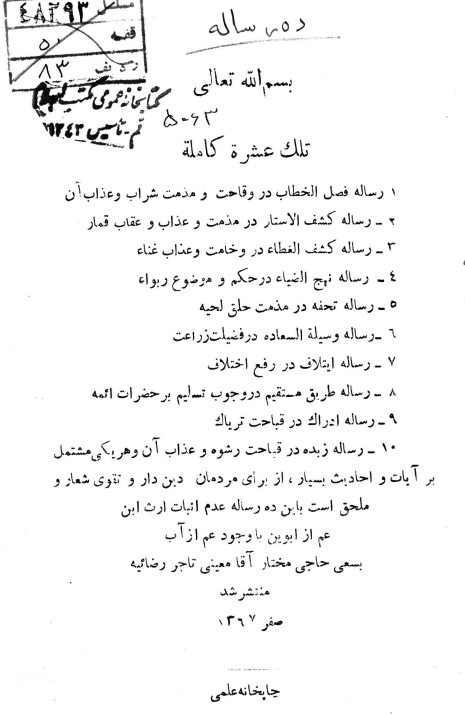 مسلسل ٤٨٢٩٣
قفسه ٥
ردیف ٨٣
کتابخانه عمومی مکتب
قم ـ تاسیس ١٣٤٣
ده رساله
بسم الله تعالی
٥٠٦٣
تلك عشرة كاملة
١ رساله فصل الخطاب در وقاحت و مذمت شراب وعذاب آن
٢ ـ رساله كشف الاستار در مذمت و عذاب و عقاب قمار
٣ ـ رساله كشف الغطاء در وخامت وعذاب غناء
٤ ـ رساله نهج الضياء درحكم و موضوع ربواء
٥ ـ رساله تحفه در مذمت حلق لحيه
٦ ـرساله وسيلة السعاده درفضيلت زراعت
٧ ـ رساله ايتلاف در رفع اختلاف
٨ ـ رساله طريق مستقيم دروجوب تسليم برحضرات ائمه
٩ ـ رساله ادراك در قباحت ترياك
١٠ ـ رساله زبده در قباحت رشوه و عذاب آن وهريكی مشتمل
بر آيات و احاديث بسيار ، از برای مردمان دين دار و تقوی شعار و
ملحق است باين ده رساله عدم اثبات ارث ابن
عم از ابوين با وجود عم از آب
بسعی حاجی مختار آقا معينی تاجر رضائيه
منتشر شد
صفر ١٣٦٧
چاپخانه علمی